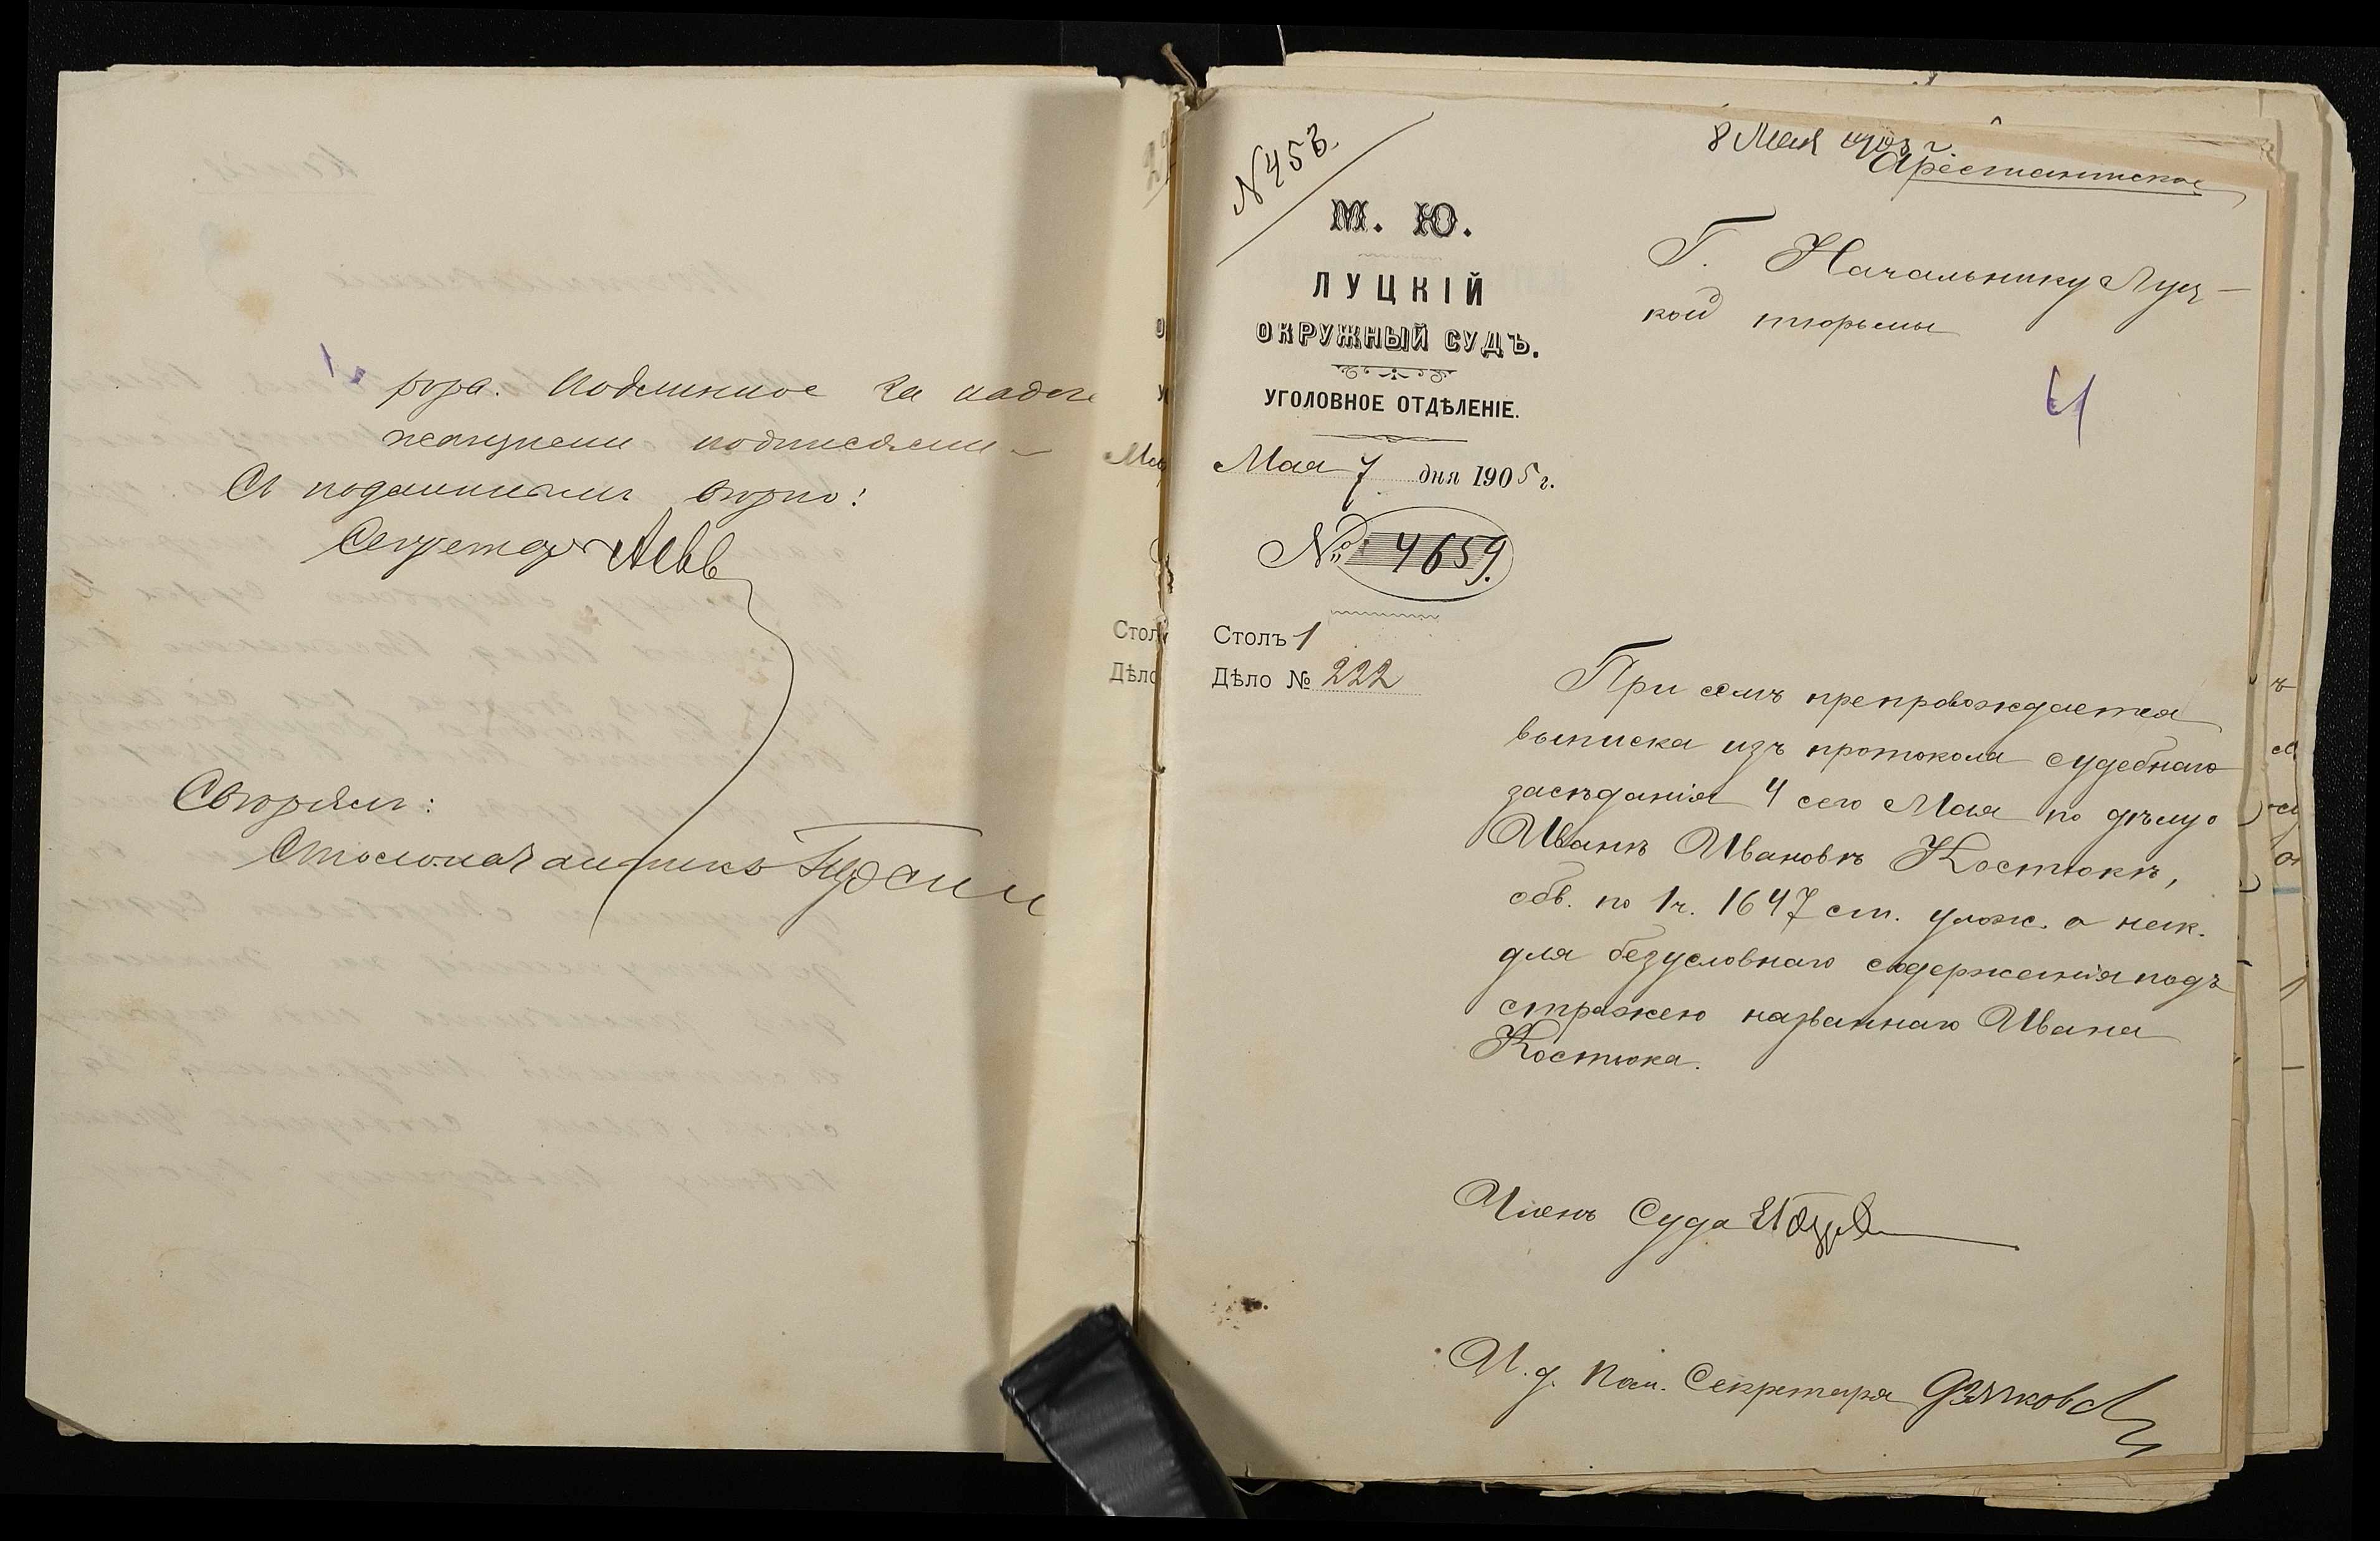 рора. Подлинное за надле
жащими подписями
Съ подлиннымъ вѣрно:
Секретарь
Свѣрялъ:
Столоначальникъ
№ 453.
8 Мая 1905 г.
Арестантское
М. Ю.
ЛУЦКІЙ
ОКРУЖНЫЙ СУДЪ.
УГОЛОВНОЕ ОТДѢЛЕНІЕ.
Мая 7 дня 1905 г.
№ 4659.
Столъ 1
Дѣло № 222
Г. Начальнику Луц-
кой тюрьмы
4
При семъ препровождается
выписка изъ протокола судебнаго
засѣданія 4 сего Мая по дѣлу о
Иванѣ Ивановѣ Костюкѣ,
обв. по 1 ч. 1647 ст. улож. о нак.
для безусловнаго содержанія подъ
стражею названнаго Ивана
Костюка.
Членъ Суда
И. д. Пом. Секретаря
Стол
Дѣло